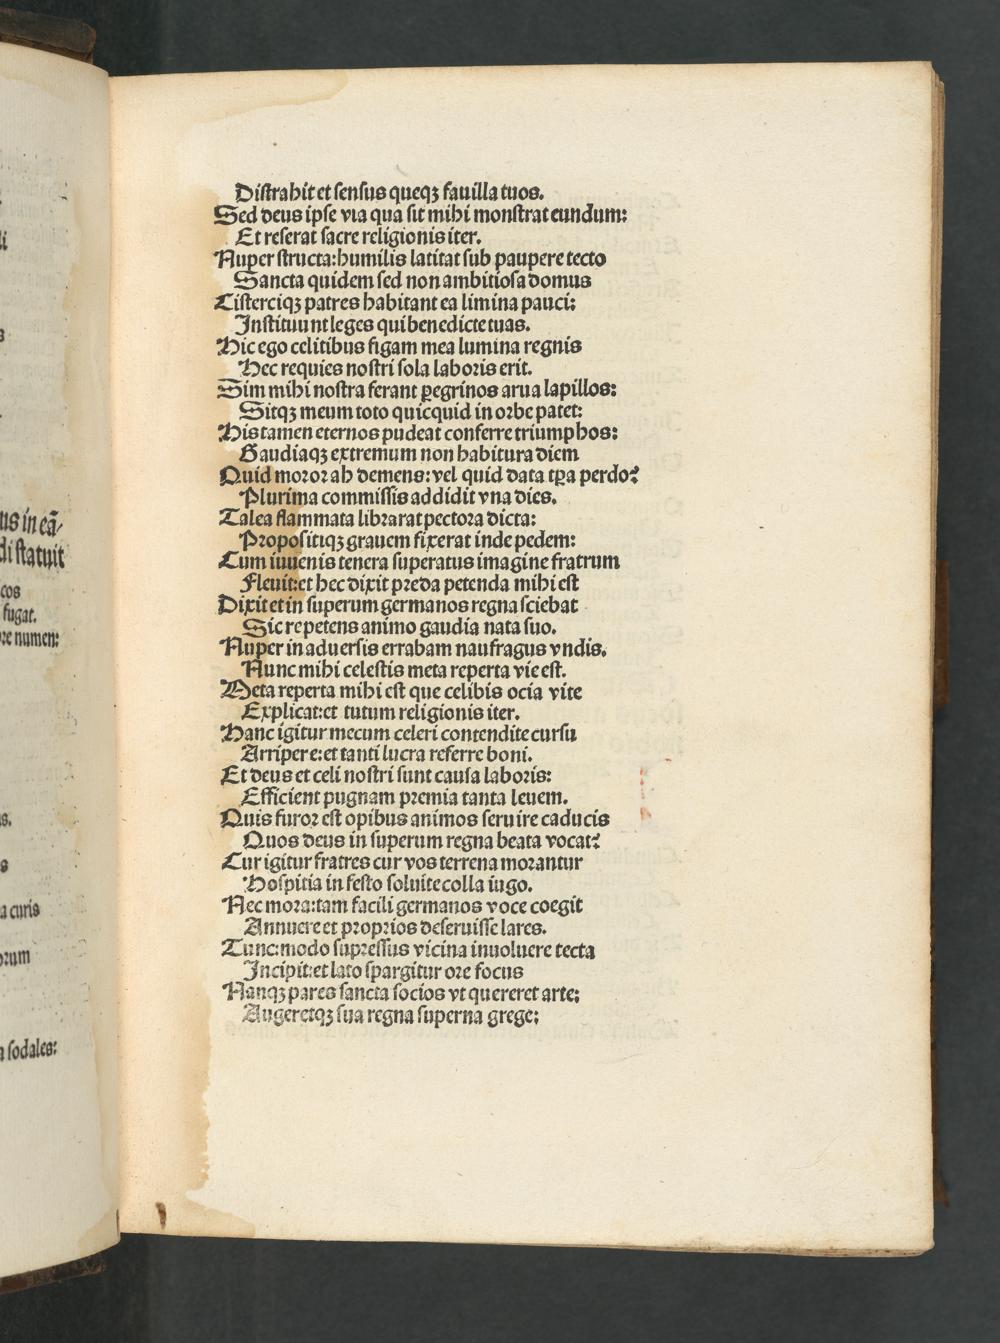 li
s
us in eā/
di statuit
cos
fugat.
re numen:
s.
s
a curis
orum
sodales:
Distrahit et sensus queqꝫ fauilla tuos.
Sed deus ipse via qua sit mihi monstrat eundum:
Et reserat sacre religionis iter.
Nuper structa: humilis latitat sub paupere tecto
Sancta quidem sed non ambitiosa domus
Cisterciqꝫ patres habitant ea limina pauci:
Instituunt leges qui benedicte tuas.
Hic ego celitibus figam mea lumina regnis
Hec requies nostri sola laboris erit.
Sim mihi nostra ferant ꝑegrinos arua lapillos:
Sitqꝫ meum toto quicquid in orbe patet:
His tamen eternos pudeat conferre triumphos:
Gaudiaqꝫ extremum non habitura diem
Quid moror ah demens: vel quid data tꝑa perdo?
Plurima commissis addidit vna dies.
Talea flammata librarat pectora dicta:
Propositiqꝫ grauem fixerat inde pedem:
Cum iuuenis tenera superatus imagine fratrum
Fleuit: et hec dixit preda petenda mihi est
Dixit et in superum germanos regna sciebat
Sic repetens animo gaudia nata suo.
Nuper in aduersis errabam naufragus vndis.
Nunc mihi celestis meta reperta vie est.
Meta reperta mihi est que celibis ocia vite
Explicat: et tutum religionis iter.
Hanc igitur mecum celeri contendite cursu
Arripere: et tanti lucra referre boni.
Et deus et celi nostri sunt causa laboris:
Efficient pugnam premia tanta leuem.
Quis furor est opibus animos seruire caducis
Quos deus in superum regna beata vocat?
Cur igitur fratres cur vos terrena morantur
Hospitia in festo soluite colla iugo.
Nec mora: tam facili germanos voce coegit
Annuere et proprios deseruisse lares.
Tunc: modo supressus vicina inuoluere tecta
Incipit: et lato spargitur ore focus
Nanqꝫ pares sancta socios vt quereret arte:
Augeretqꝫ sua regna superna grege: